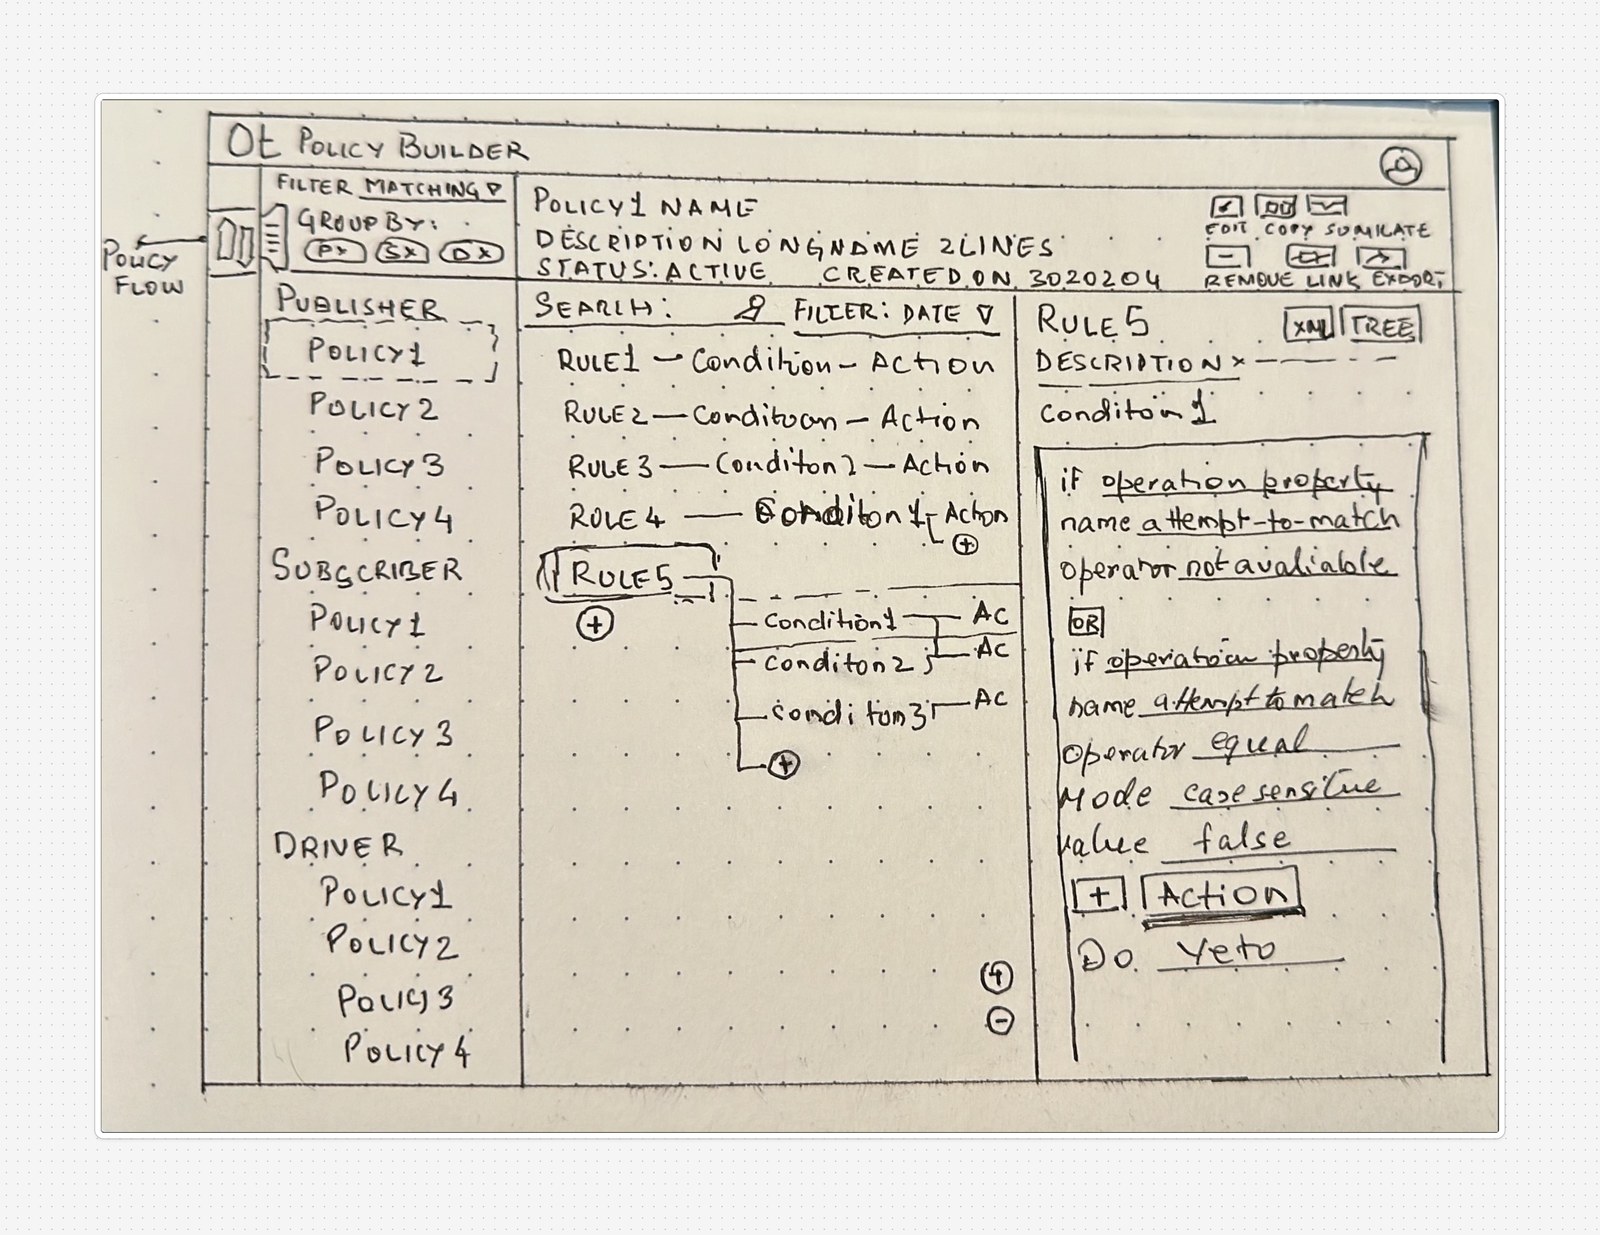 Ot POLICY BUILDER
FILTER MATCHING
GROUP BY:
P× S× D×
POLICY
FLOW
POLICY1 NAME
DESCRIPTION LONGNAME 2LINES
STATUS: ACTIVE CREATED ON 3020204
EDIT COPY SUMILATE
REMOVE LINK EXPORT
PUBLISHER
POLICY1
POLICY2
POLICY3
POLICY4
SUBSCRIBER
POLICY1
POLICY2
POLICY3
POLICY4
DRIVER
POLICY1
POLICY2
POLICY3
POLICY4
SEARCH: FILTER: DATE
RULE1 — Condition — Action
RULE2 — Condituon — Action
RULE3 — Conditon2 — Action
RULE4 — Conditon1 — Action
+
RULE5
+
Condition1 — AC
Conditon2 — AC
Conditon3 — AC
+
+
-
RULE5 XML TREE
DESCRIPTION ×
Conditon1
if operation property
name attempt-to-match
operator not avaliable
OR
if operation property
name attempt to match
operator equal
Mode case sensitive
value false
+ Action
Do veto